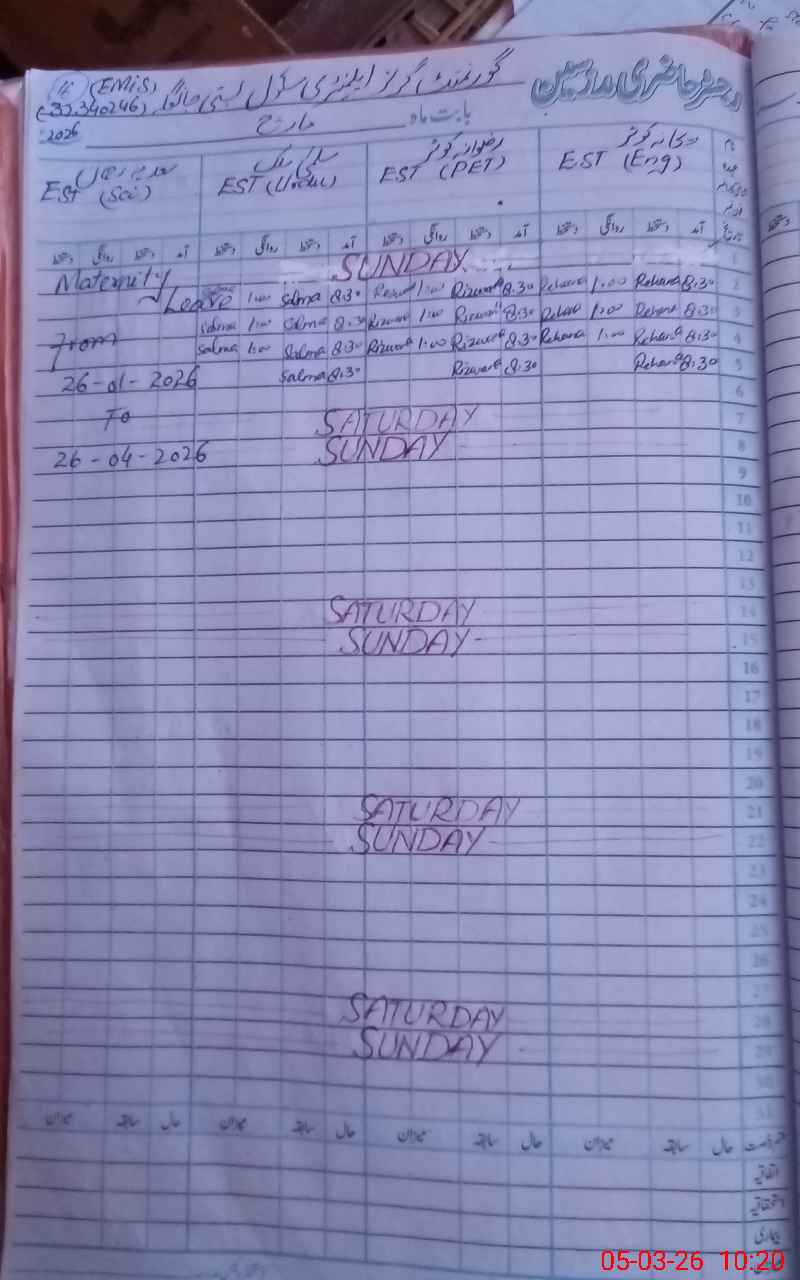 رجسٹر حاضری مدرسین
گورنمنٹ گرلز ایلیمنٹری سکول بستی
(EMIS)
(32340246)
بابت ماہ مارچ 2026
ریحانہ کوثر EST (Eng)
رضوانہ کوثر EST (PET)
EST (Urdu)
EST (Sci)
آمد دستخط روانگی دستخط آمد دستخط روانگی دستخط آمد دستخط روانگی دستخط آمد دستخط روانگی دستخط
1 SUNDAY
Maternity
Leave 1:00 Salma 8:30 1:00 Rizwana 8:30 Rehana 1:00 Rehana 8:30 2
Salma 1:00 Salma 8:30 Rizwana 1:00 Rizwana 8:30 Rehana 1:00 Rehana 8:30 3
From
Salma 1:00 Salma 8:30 Rizwana 1:00 Rizwana 8:30 Rehana 1:00 Rehana 8:30 4
26-01-2026 Salma 8:30 Rizwana 8:30 Rehana 8:30 5
To 6
SATURDAY 7
26-04-2026 SUNDAY 8
9
10
11
12
13
SATURDAY 14
SUNDAY 15
16
17
18
19
20
SATURDAY 21
SUNDAY 22
23
24
25
26
27
SATURDAY 28
SUNDAY 29
30
31
حال سابقہ میزان حال سابقہ میزان حال سابقہ میزان حال سابقہ میزان
اتفاقیہ
استحقاقیہ
بیماری
05-03-26 10:20